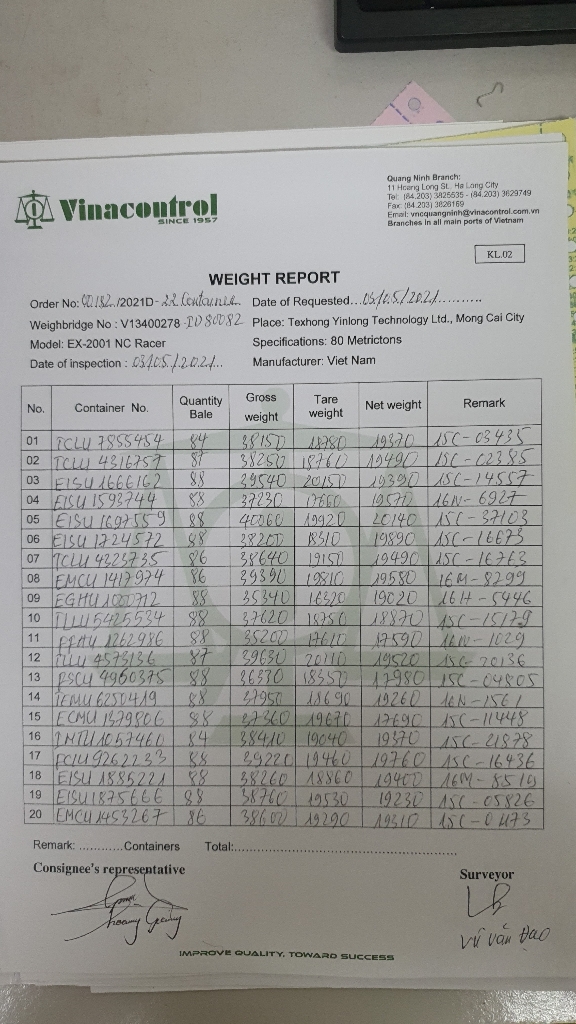 Vinacontrol
SINCE 1957
Quang Ninh Branch:
11 Hoang Long St., Ha Long City
Tel: (84.203) 3825535 - (84.203) 3629749
Fax: (84.203) 3826169
Email: vncquangninh@vinacontrol.com.vn
Branches in all main ports of Vietnam
KL.02
WEIGHT REPORT
Order No: /2021D - 22 Container Date of Requested...03/05/2021...........
Weighbridge No : V13400278 - PD80082 Place: Texhong Yinlong Technology Ltd., Mong Cai City
Model: EX-2001 NC Racer Specifications: 80 Metrictons
Date of inspection : 03/05/2021... Manufacturer: Viet Nam
No. Container No. Quantity Bale Gross weight Tare weight Net weight Remark
01 TCLU 7855454 84 38150 18780 19370 15C-03435
02 TCLU 4316757 87 38250 18760 19490 15C-02385
03 EISU 1666162 88 39540 20150 19390 15C-14557
04 EISU 1593744 88 37230 17660 19570 16N-6927
05 EISU 1697559 88 40060 19920 20140 15C-37103
06 EISU 1724572 88 38200 18310 19890 15C-16673
07 TCLU 4323735 86 38640 19150 19490 15C-16763
08 EMCU 1417974 86 39390 19810 19580 16M-8299
09 EGHU 1000712 88 35340 16320 19020 16H-5946
10 5425534 88 37620 18750 18870 15C-15179
11 1262986 88 35200 17610 17590 16N-1029
12 4573136 87 39630 20110 19520 15C-20136
13 4960375 88 36330 18350 17980 15C-04805
14 TEMU 6250419 88 37950 18690 19260 16N-1561
15 ECMU 1379806 88 37360 19670 17690 15C-11448
16 1057460 84 38410 19040 19370 15C-21878
17 FCIU 9262233 88 39220 19460 19760 15C-16436
18 EISU 1885221 88 38260 18860 19400 16M-8519
19 EISU 1875666 88 38760 19530 19230 15C-05826
20 EMCU 1453267 86 38600 19290 19310 15C-0473
Remark: ............Containers Total:......................................................
Consignee's representative Surveyor
Hoang Giang
Vũ Văn Đạo
IMPROVE QUALITY, TOWARD SUCCESS